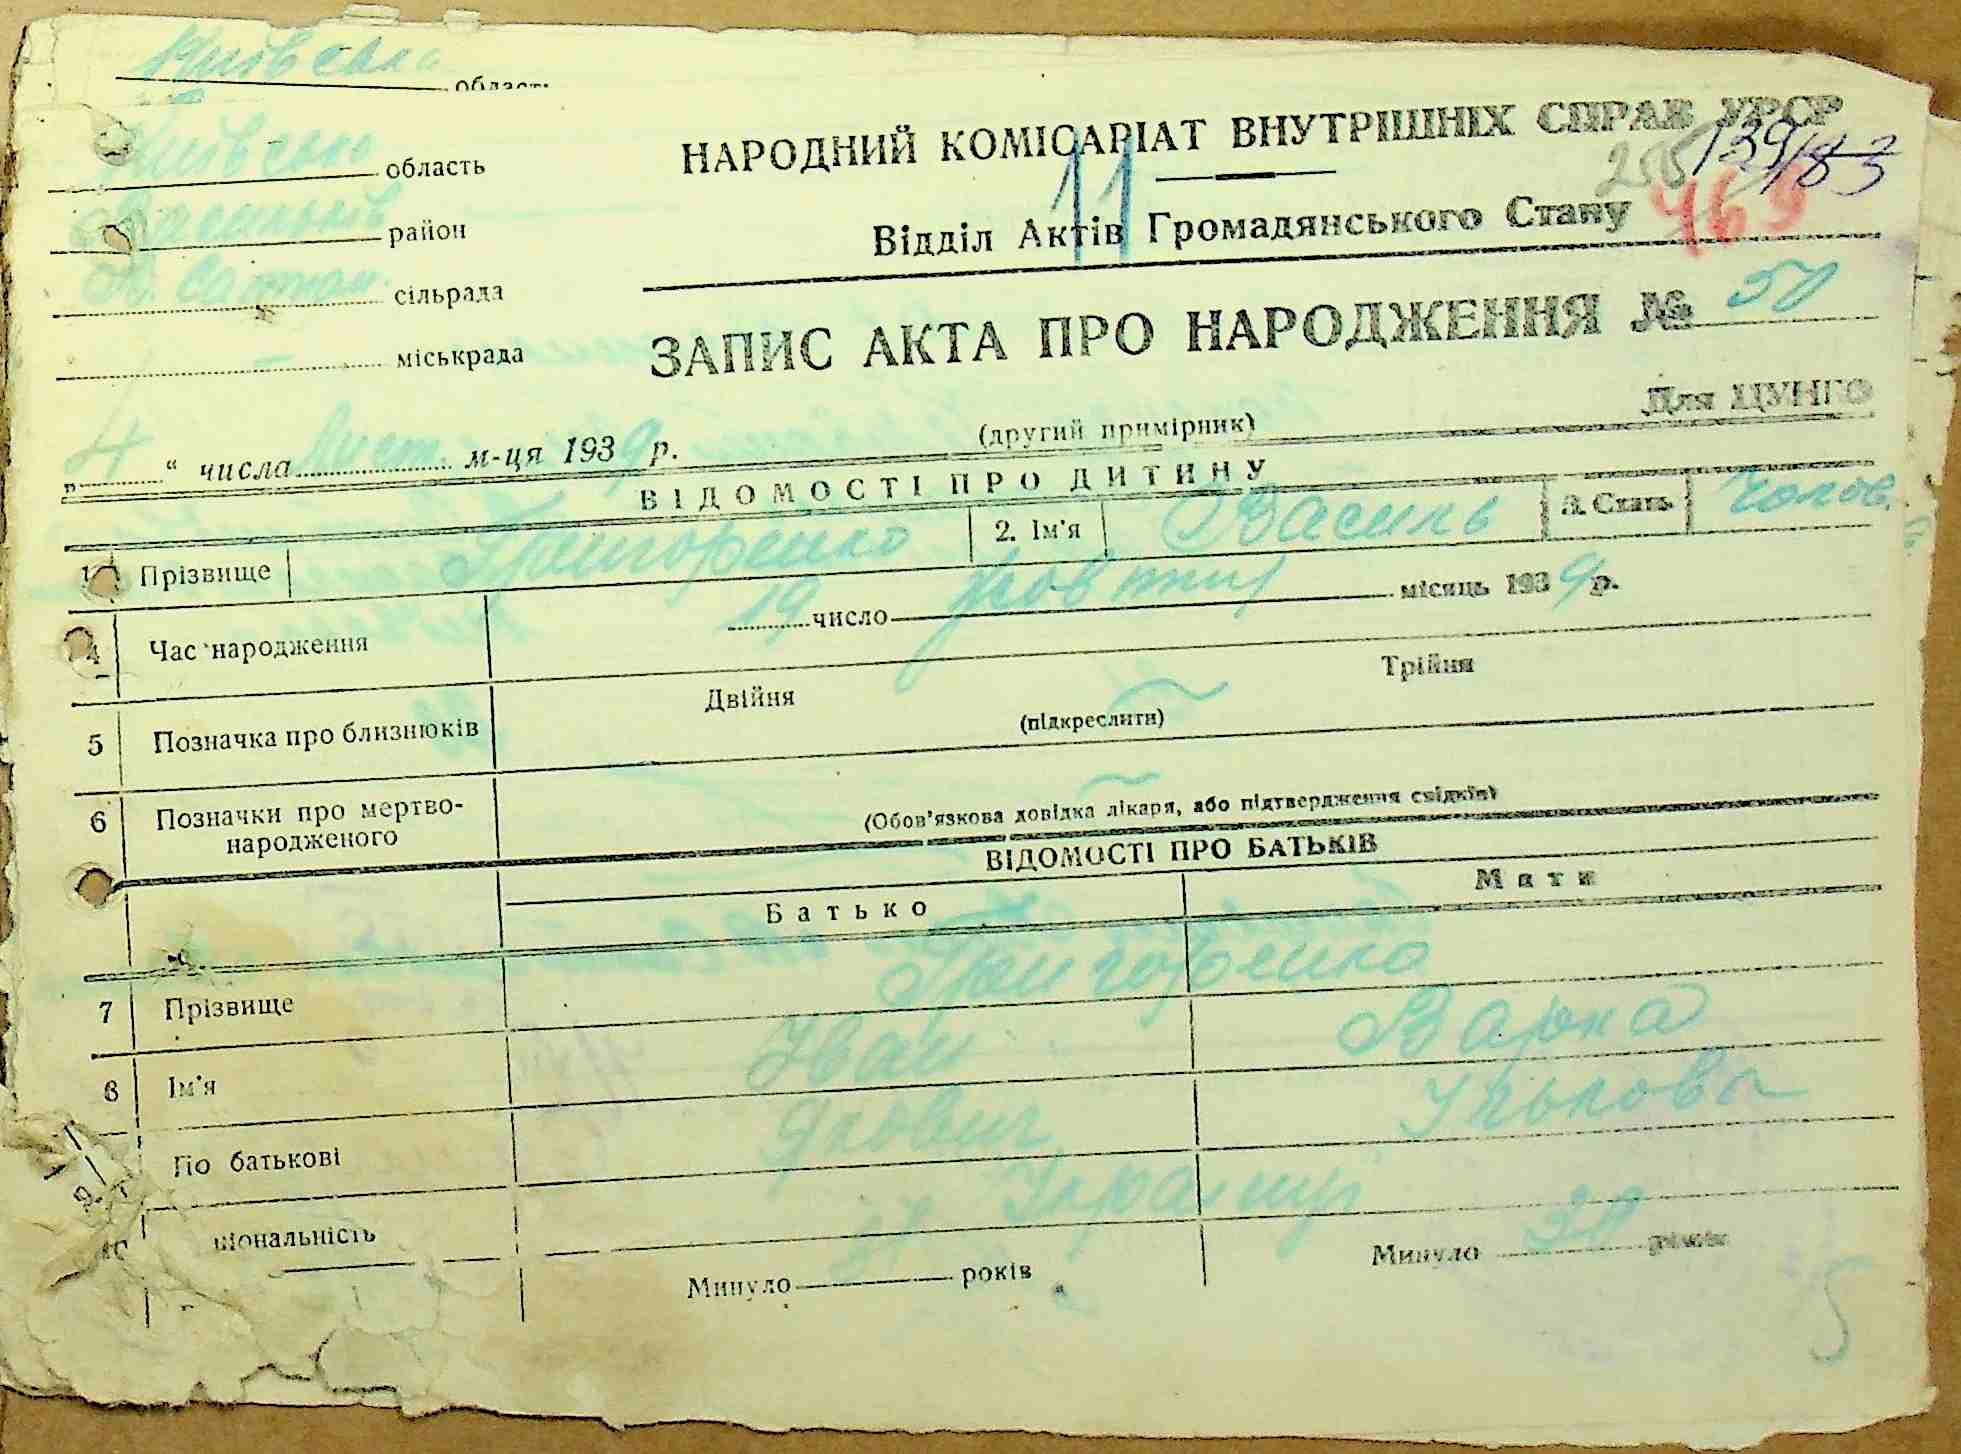 Київська
област
Київська область
Васильків район
сільрада
міськрада
НАРОДНИЙ КОМІСАРІАТ ВНУТРІШНІХ СПРАВ УРСР
11
255 139/83
469
Відділ Актів Громадянського Стану
ЗАПИС АКТА ПРО НАРОДЖЕННЯ № 50
Для ЦУНГО
(другий примірник)
„ 4 “ числа Лист. м-ця 1939 р.
ВІДОМОСТІ ПРО ДИТИНУ
1 Прізвище Григоренко 2. Ім'я Василь 3. Стать Чолов.
4 Час народження 19 число жовтня місяць 1939 р.
5 Позначка про близнюків Двійня (підкреслити) Трійня
6 Позначки про мертво-
народженого (Обов'язкова довідка лікаря, або підтвердження свідків)
ВІДОМОСТІ ПРО БАТЬКІВ
Батько Мати
7 Прізвище Григоренко
8 Ім'я Іван Варка
9 По батькові Якович
10 ціональність Українці
Минуло років Минуло 30 років